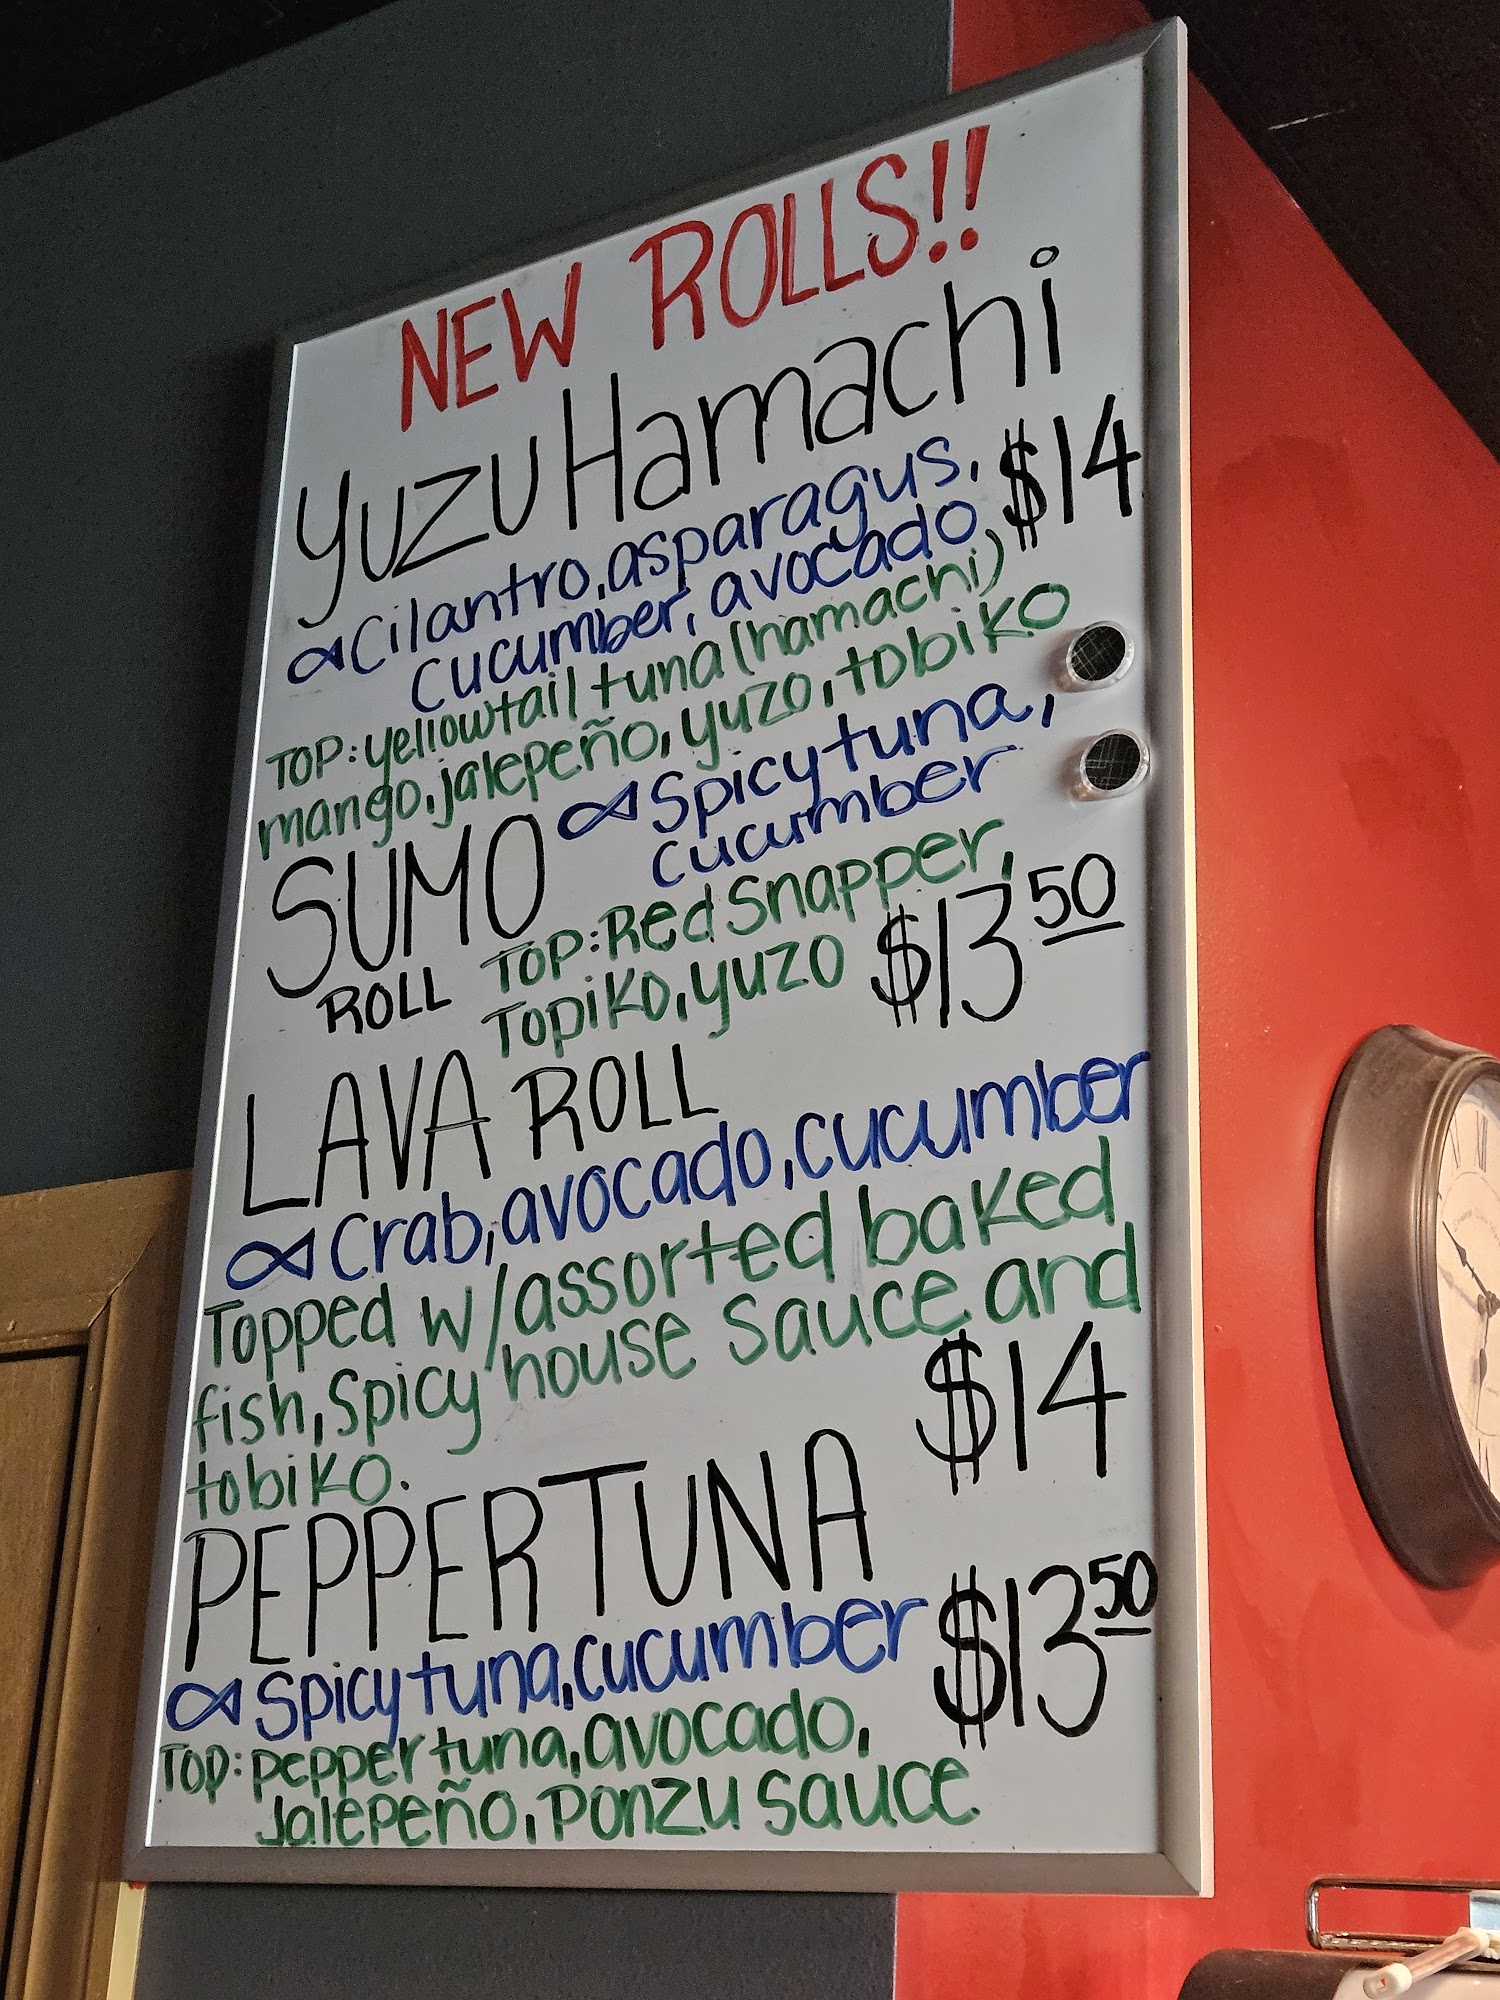 NEW ROLLS!!
Yuzu Hamachi
Cilantro, asparagus, $14
cucumber, avocado,
TOP: yellowtail tuna (hamachi)
mango, jalepeño, yuzo, tobiko
SUMO Spicy tuna,
cucumber
ROLL TOP: Red Snapper,
Topiko, yuzo $13 50
LAVA ROLL
Crab, avocado, cucumber
Topped w/assorted baked
fish, spicy house sauce and
tobiko. $14
PEPPER TUNA
Spicy tuna, cucumber $13 50
TOP: pepper tuna, avocado,
Jalepeño, Ponzu sauce